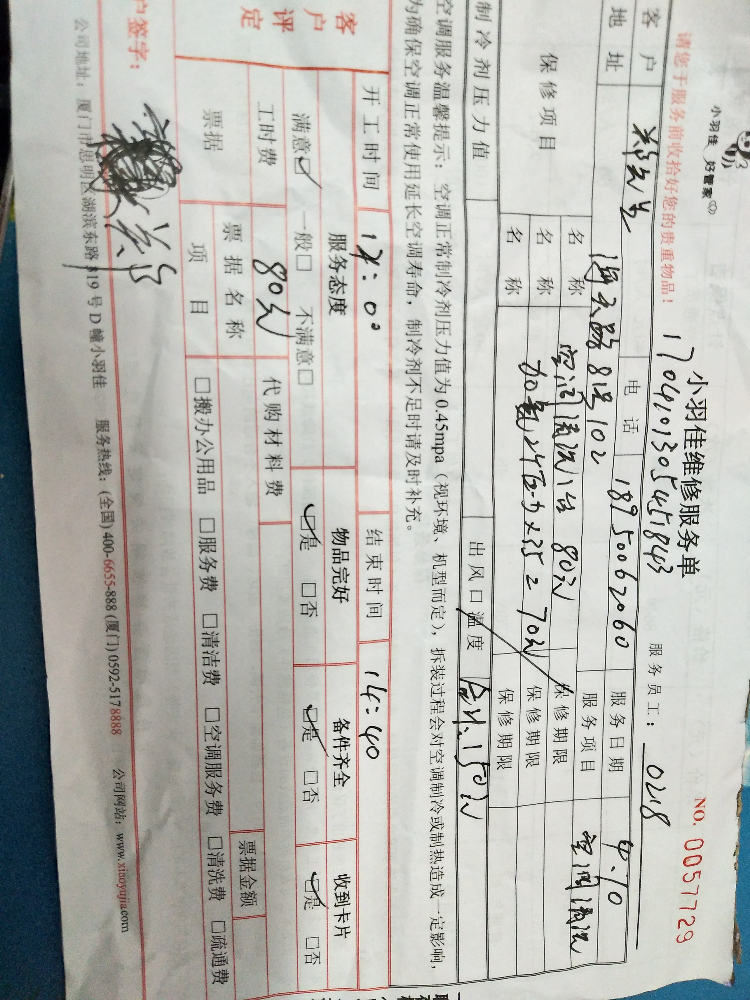 小羽佳 好管家
小羽佳维修服务单
NO. 0057729
1704101305451843
请您于服务前收拾好您的贵重物品！
服务员工： 0218
客户 电话 18950062060 服务日期 4.10
地址 海天路81号102 服务项目 空调清洗
保修项目 名称 空调清洗1台 80元 保修期限
名称 加氟2个压力×35=70元 保修期限
名称 保修期限
制冷剂压力值 出风口温度 合计：150元
空调服务温馨提示：空调正常制冷剂压力值为0.45mpa（视环境、机型而定），拆装过程会对空调制冷或制热造成一定影响，
为确保空调正常使用延长空调寿命，制冷剂不足时请及时补充。
开工时间 14：00 结束时间 14：40
客户评定
服务态度 物品完好 备件齐全 收到卡片
满意☑ 一般□ 不满意□ ☑是 □否 ☑是 □否 ☑是 □否
工时费 80元 代购材料费
票据 票据名称 票据金额
项目 □搬办公用品 □服务费 □清洁费 □空调服务费 □清洗费 □疏通费
户签字：
公司地址：厦门市思明区湖滨东路319号D幢小羽佳 服务热线：(全国)400-6655-888 (厦门)0592-5178888 公司网站：www.xiaoyujia.com